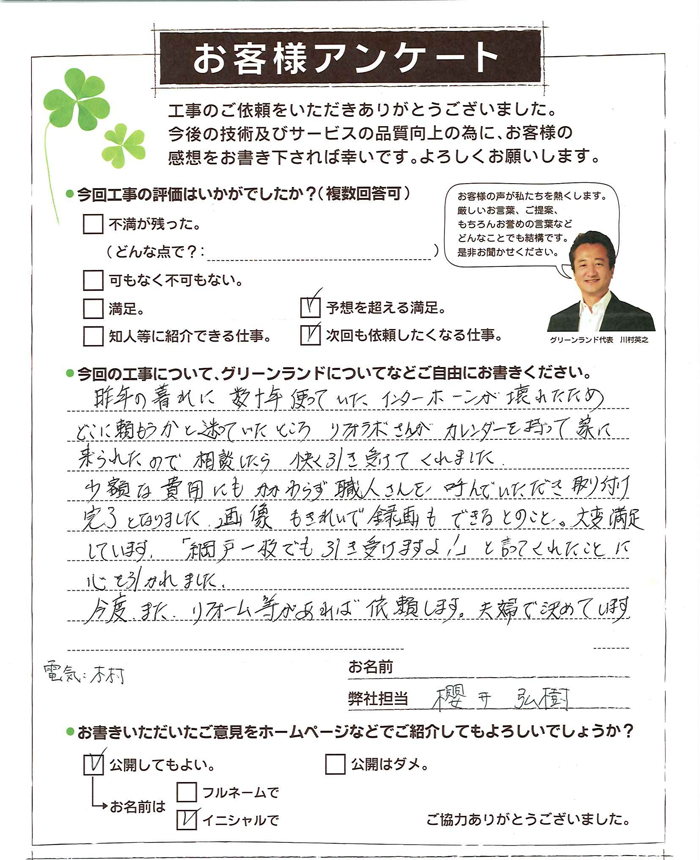 お客様アンケート
工事のご依頼をいただきありがとうございました。
今後の技術及びサービスの品質向上の為に、お客様の
感想をお書き下されば幸いです。よろしくお願いします。
今回工事の評価はいかがでしたか？(複数回答可)
不満が残った。
(どんな点で？： )
可もなく不可もない。
満足。
予想を超える満足。
知人等に紹介できる仕事。
次回も依頼したくなる仕事。
お客様の声が私たちを熱くします。
厳しいお言葉、ご提案、
もちろんお誉めの言葉など
どんなことでも結構です。
是非お聞かせください。
グリーンランド代表 川村英之
今回の工事について、グリーンランドについてなどご自由にお書きください。
昨年の暮れに 数十年使っていた インターホーンが 壊れたため
どこに頼もうかと迷っていたところ リフォラボさんが カレンダーを持って 家に
来られたので 相談したら 快く引き受けて くれました.
少額な費用にも かかわらず 職人さんを 呼んでいただき 取り付け
完了となりました. 画像 もきれいで 録画も できるとのこと。大変満足
しています. 「網戸一枚でも 引き受けますよ!」と 言ってくれたことに
心を引かれました.
今度.また. リフォーム等があれば 依頼します。夫婦で決めています
電気:木村
お名前
弊社担当 櫻井 弘樹
お書きいただいたご意見をホームページなどでご紹介してもよろしいでしょうか？
公開してもよい。
公開はダメ。
お名前は
フルネームで
イニシャルで
ご協力ありがとうございました。